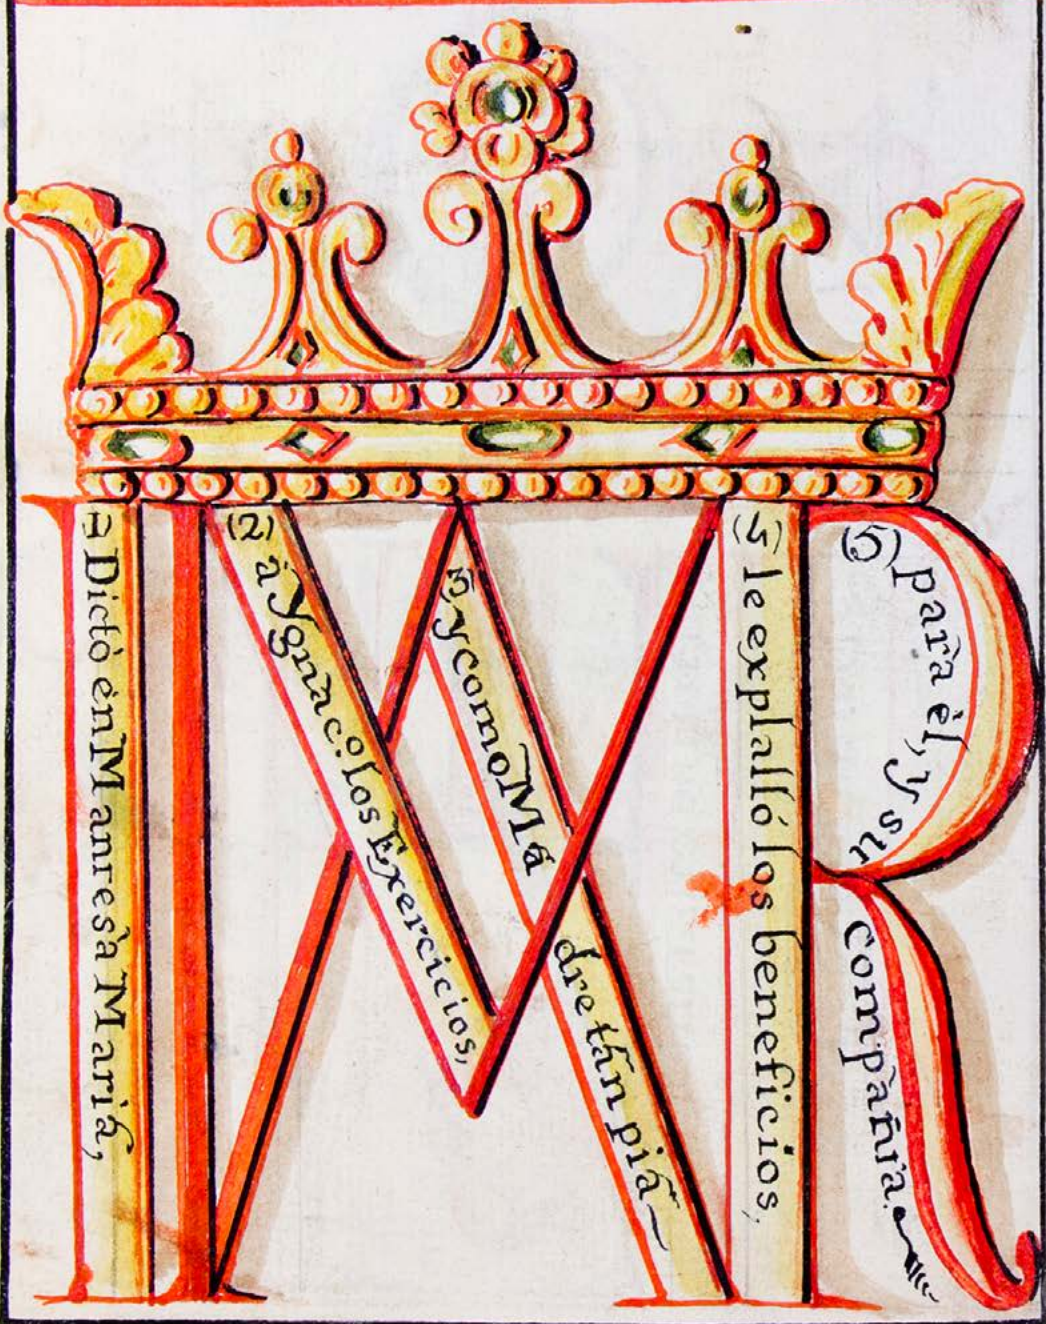 1) Dictó en Manresa Maria,
(2) á Ygnac.º los Exercicios,
3) y como Madre tán piá
(4) le explalló los beneficios,
(5) para èl, y su
Compañia.